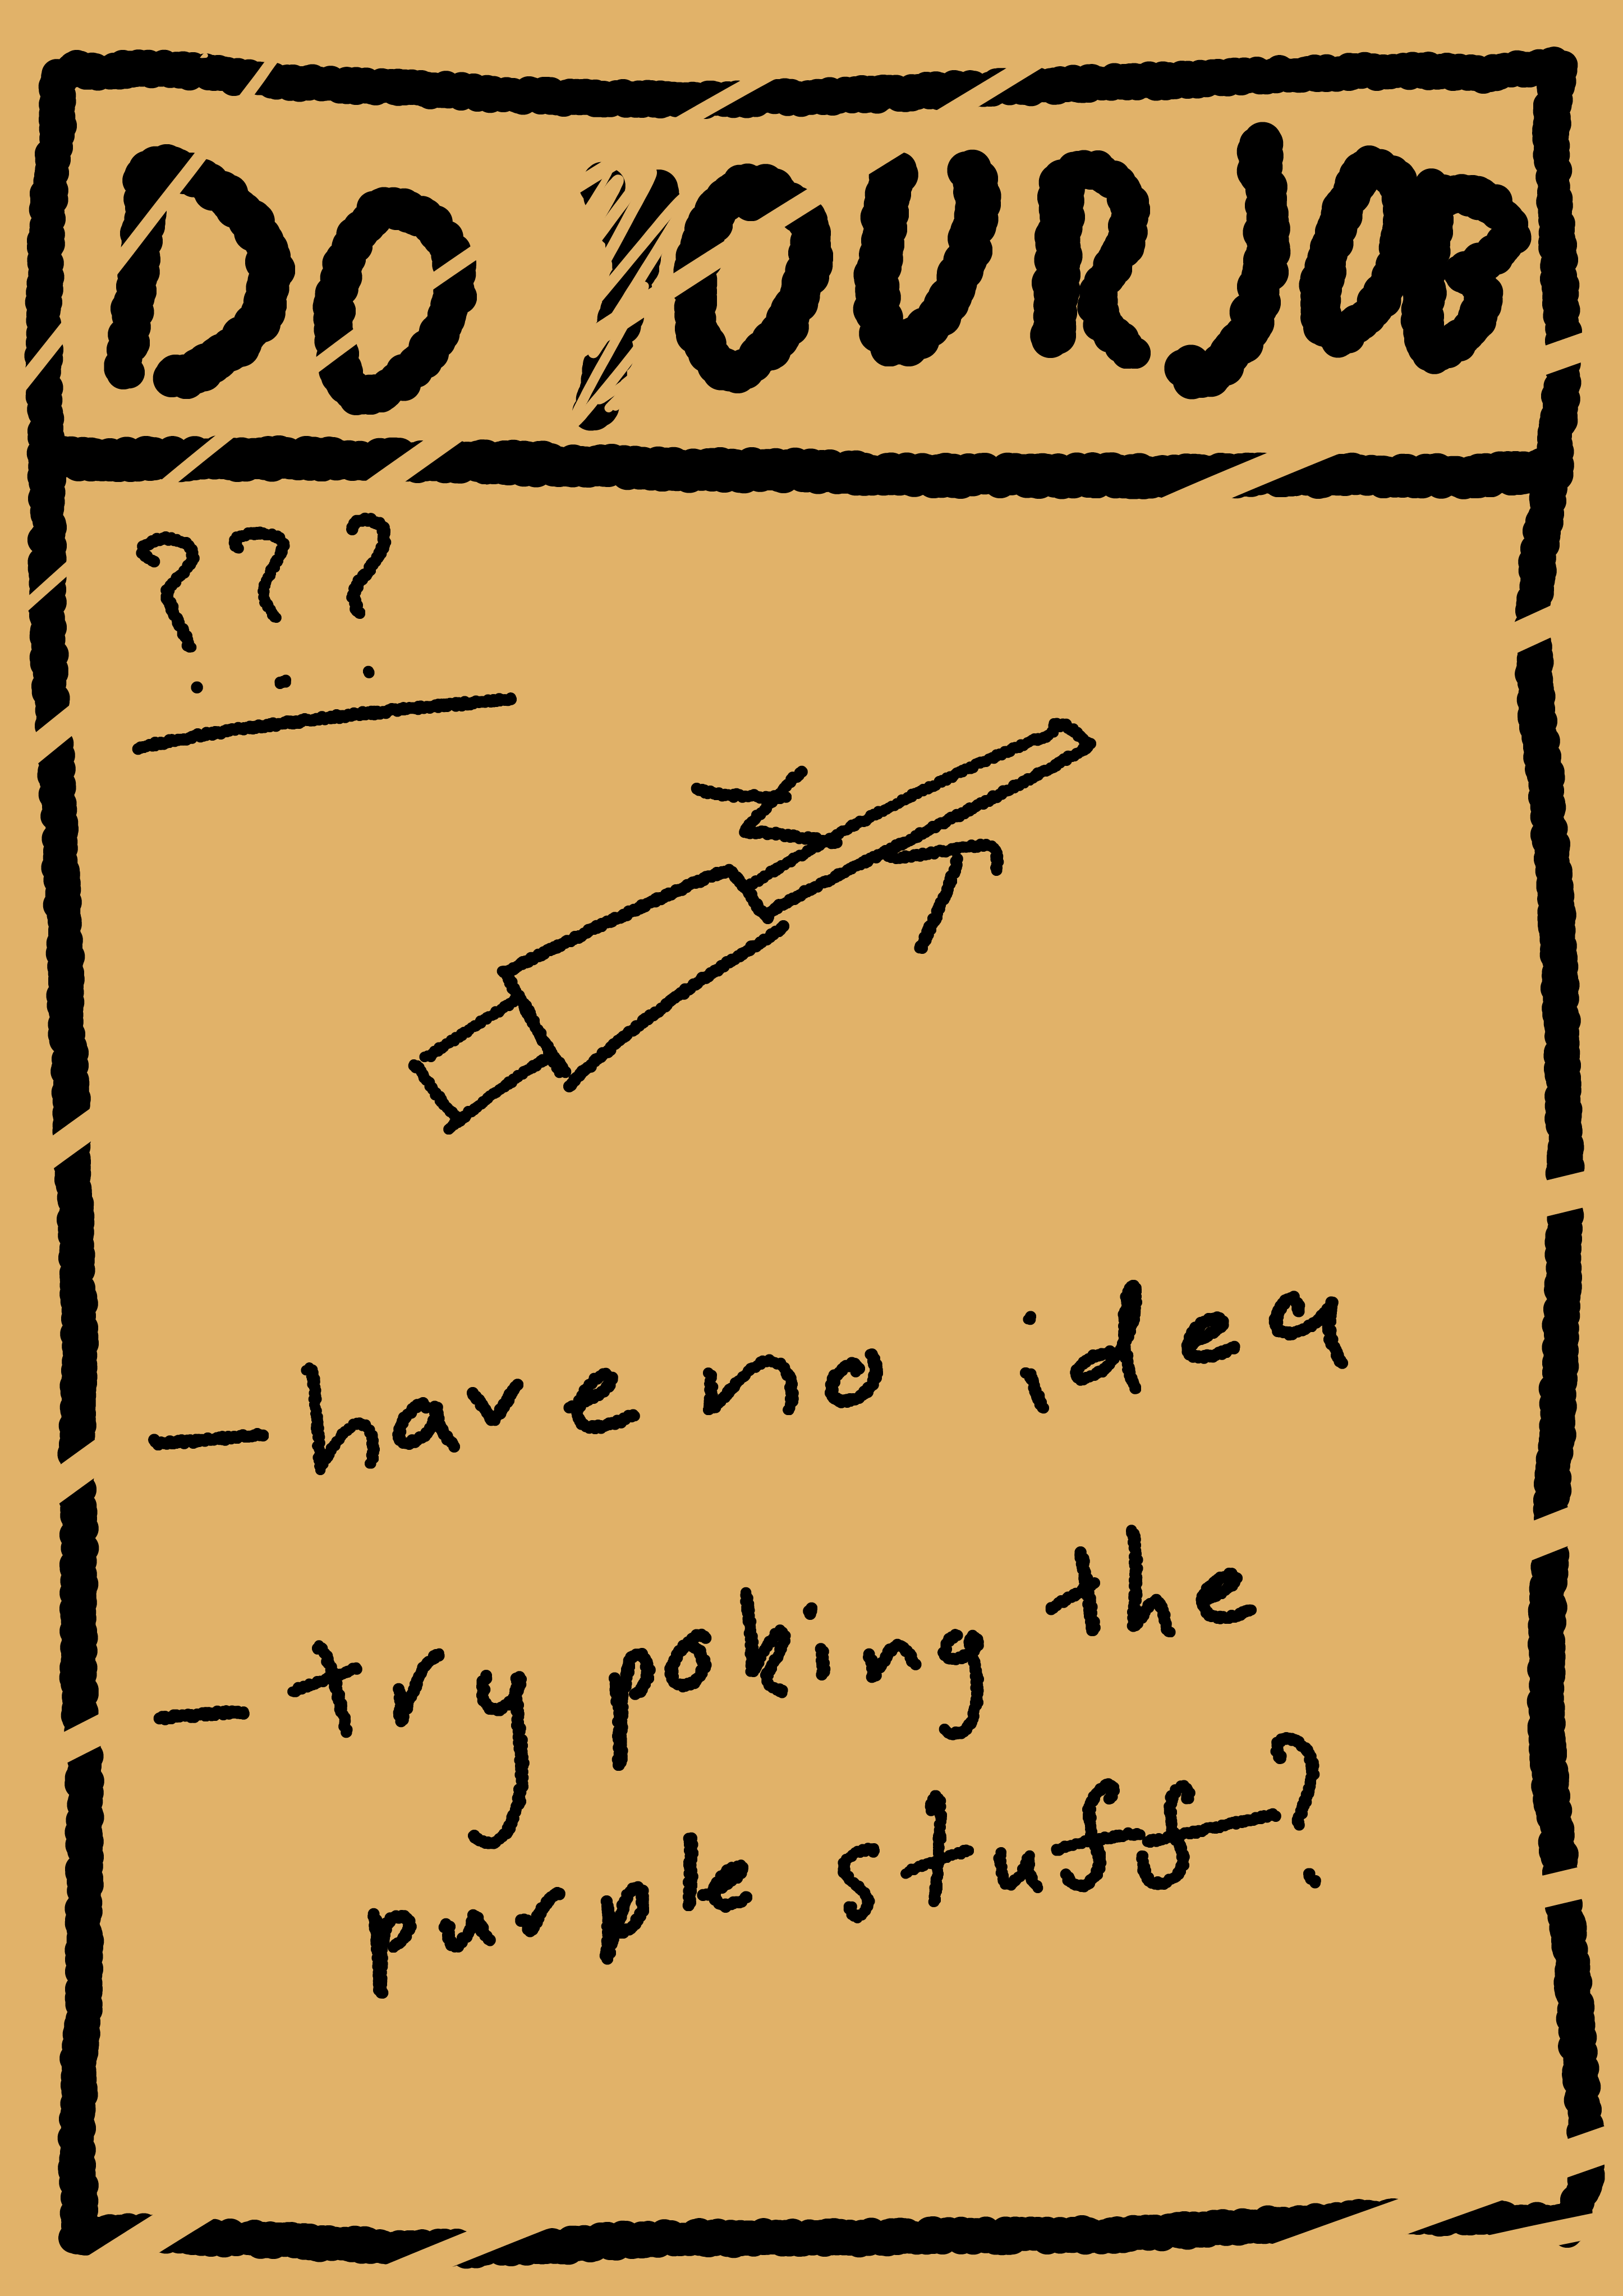 DO YOUR JOB
???
- have no idea
- try poking the
purple stuff?